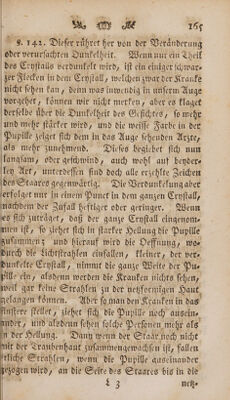 165
§. 142. Dieser rühret her von der Veränderung
oder verursachten Dunkelheit. Wenn nur ein Theil
des Crystalls verdunkelt wird, ist ein einiger schwar-
zer Flecken in dem Crystall, welchen zwar der Kranke
nicht sehen kan, denn was inwendig in unserm Auge
vorgehet, können wir nicht merken, aber es klaget
derselbe über die Dunkelheit des Gesichtes, so mehr
und mehr stärker wird, und die weisse Farbe in der
Pupille zeiget sich dem in das Auge sehenden Arzte,
als mehr zunehmend. Dieses begiebet sich nun
langsam, oder geschwind, auch wohl auf beyder-
ley Art, unterdessen sind doch alle erzehlte Zeichen
des Staares gegenwärtig. Die Verdunkelung aber
erfolgt mit in einem Punct in dem ganzen Crystall,
nachdem der Zufall heftiger oder geringer. Wenn
es sich zuträget, daß der ganze Crystall eingenom-
men ist, so ziehet sich in starker Hellung die Pupille
zusammen; und hierauf wird die Oeffnung, wo-
durch die Lichtstrahlen einfallen, kleiner, der ver-
dunkelte Crystall, nimmt die ganze Weite der Pu-
pille ein, alsdenn werden die Kranken nichts sehn,
weil gar keine Strahlen zu der netzförmigen Haut
gelangen können. Aber so man den Kranken in das
finstere stellet, ziehet sich die Pupille noch auseinan-
der, und alsdenn sehen solche Personen mehr als
in der Hellung. Dann wenn der Staar noch nicht
mit der Traubenhaut zusammengewachsen ist, fallen
etliche Strahlen, wenn die Pupille auseinander
gezogen wird, an die Seite des Staares bis in die
L 3 netz-